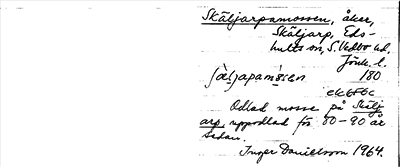 Skäljarpamossen, åker,
Skäljarp, Eds-
hults sn, S. Vedbo hd,
Jönk. l.
180
Odlad mosse på Skälj
arp, uppodlad för 80-90 år
sedan.
Inger Danielsson 1964.